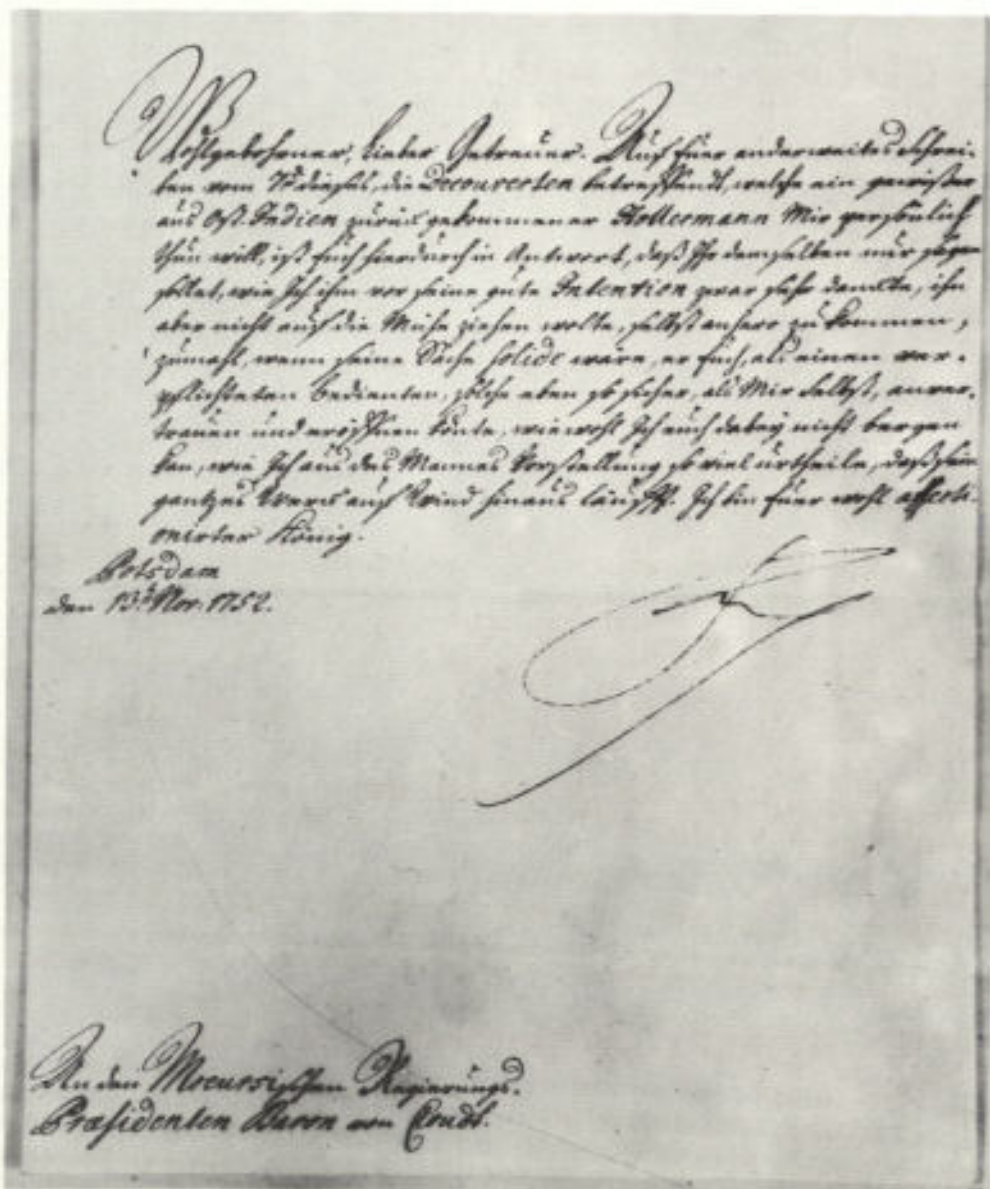 Wohlgebohrner, lieber Getreuer. Auf Euer anderweites Schrei-
ben vom 7t. dieses, die Decouverten betreffendt, welche ein gewißer
aus Ost. Indien zurück gekommener Holtermann Mir persönlich
thun will, ist Euch hierdurch in Antwort, daß Ihr demselben nur sagen
sollet, wie Ich ihm vor seine gute Intention zwar sehr danckte, ihn
aber nicht auf die Mühe ziehen wolte, selbst anhero zu kommen,
zumahl, wenn seine Sache solide wäre, er Euch, als einen ver-
pflichteten Bedienten, solche eben so sicher, als Mir Selbst, anver-
trauen und eröffnen könte, wiewohl Ich auch dabey nicht bergen
kan, wie Ich aus des Mannes Vorstellung so viel urtheile, daß sein
gantzes Werck auf Wind hinaus läufft. Ich bin Euer wohl affecti-
onirter König.
Potsdam
den 13t. Nov. 1752.
An den Meursischen Regierungs-
Præsidenten Baron von